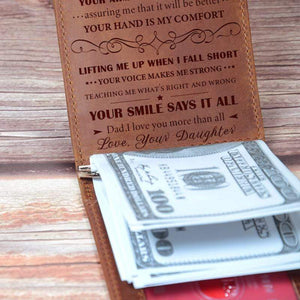 YOUR
...assuring me that it will be better...
YOUR HAND IS MY COMFORT
LIFTING ME UP WHEN I FALL SHORT
YOUR VOICE MAKES ME STRONG
TEACHING ME WHAT'S RIGHT AND WRONG
YOUR SMILE SAYS IT ALL
Dad, I love you more than all
Love, Your Daughter
100
100